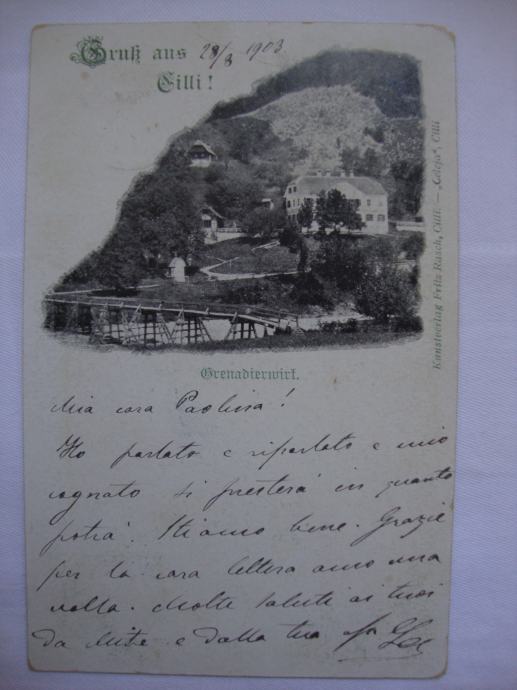 Gruß aus 28/3 1903
Cilli!
Kunstverlag Fritz Rasch, Cilli. — „Celeja“, Cilli
Grenadierwirt.
Mia cara Paolina!
Ho parlato e riparlato e mio
cognato si presterà in quanto
potrà. Stiamo bene. Grazie
per la cara lettera
volta. Molte saluti ai tuoi
da e dalla tua